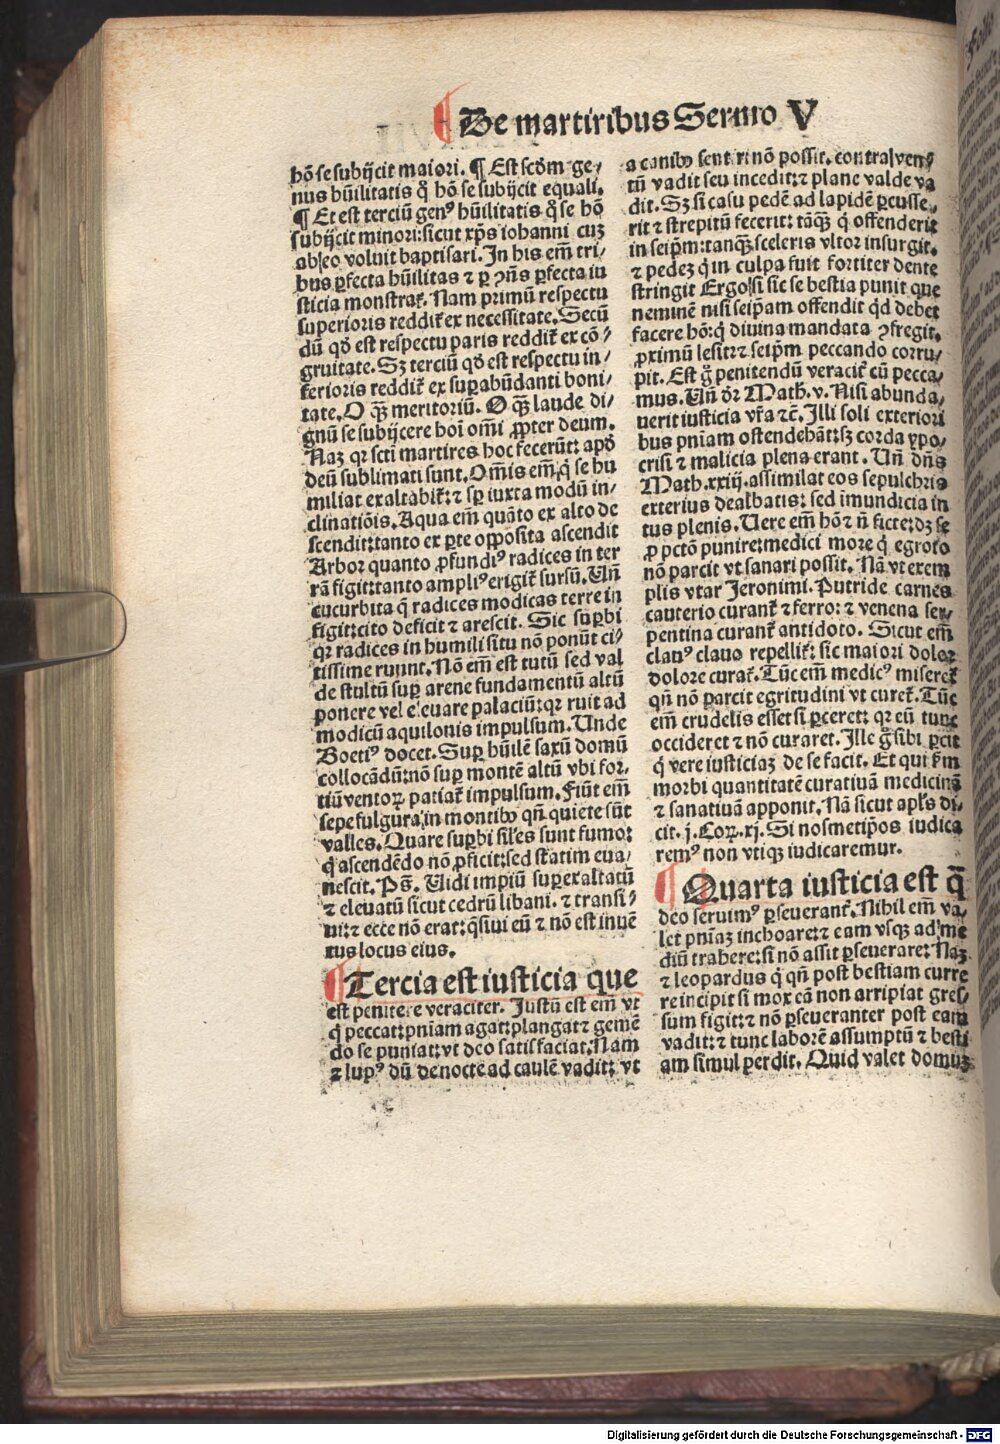 De martiribus Sermo V
hō se subijcit maiori. ¶ Est scd̄m ge/
nus hūilitatis q̄ hō se subijcit equali.
¶ Et est terciū genꝰ hūilitatis q̄ se hō
subijcit minori: sicut xp̄s iohanni cuꝫ
ab eo voluit baptisari. In his em̄ tri/
bus ꝑfecta hūilitas ⁊ ꝑ ꝯn̄s ꝑfecta iu
sticia monstrat̄. Nam primū respectu
superioris reddit̄ ex necessitate. Secū
dū qd̄ est respectu paris reddit̄ ex cō/
gruitate. Sꝫ terciū qd̄ est respectu in/
ferioris reddit̄ ex suꝑabūdanti boni/
tate. O qꝫ meritoriū. O qꝫ laude di/
gnū se subijcere hoī om̄i ꝓpter deum.
Naꝫ qꝛ scti martires hoc fecerūt: apd̄
deū sublimati sunt. Om̄is em̄ q̇ se hu
miliat exaltabit̄: ⁊ sꝑ iuxta modū in/
clinatiōis. Aqua em̄ quāto ex alto de
scendit: tanto ex ꝑte opposita ascendit
Arbor quanto ꝓfundiꝰ radices in ter
rā figit: tanto ampliꝰ erigit̄ sursū. Un̄
cucurbita q̄ radices modicas terre in
figit: cito deficit ⁊ arescit. Sic suꝑbi
qꝛ radices in humili situ nō ponūt ci/
tissime ruunt. Nō em̄ est tutū sed val
de stultū suꝑ arene fundamentū altū
ponere vel eleuare palaciū: qꝛ ruit ad
modicū aquilonis impulsum. Unde
Boetiꝰ docet. Suꝑ hūilē saxū domū
collocādū: nō suꝑ montē altū vbi for/
tiū ventoꝝ patiat̄ impulsum. Fiūt em̄
sepe fulgura in montibꝰ qn̄ quiete sūt
valles. Quare suꝑbi sil̄es sunt fumo:
q̇ ascendēdo nō ꝓficit: sed statim eua/
nescit. Ps̄. Uidi impiū suꝑexaltatū
⁊ eleuatū sicut cedrū libani. ⁊ transi/
ui: ⁊ ecce nō erat: q̄siui eū ⁊ nō est inuē
tus locus eius.
¶ Tercia est iusticia que
est penitere veraciter. Justū est em̄ vt
q̇ peccat: pn̄iam agat: plangat ⁊ gemē
do se puniat: vt deo satisfaciat. Nam
⁊ lupꝰ dū de nocte ad caulē vadit: vt
a canibꝰ sentiri nō possit. contra ventꝫ
tū vadit seu incedit: ⁊ plane valde va
dit. Sꝫ si casu pedē ad lapidē ꝑcusse/
rit ⁊ strepitū fecerit: tāqꝫ q̇ offenderit
in seip̄m: tanqꝫ sceleris vltor insurgit.
⁊ pedeꝫ q̇ in culpa fuit fortiter dente
stringit Ergo si sic se bestia punit que
neminē nisi seip̄am offendit qd̄ debet
facere hō: q̇ diuina mandata ꝯfregit.
ꝓximū lesit: ⁊ seip̄m peccando corru/
pit. Est g̊ penitendū veracit̄ cū pecca/
mus. Un̄ dr̄ Math. v. Nisi abunda/
uerit iusticia vr̄a ⁊c̄. Illi soli exteriori
bus pn̄iam ostendebāt: sꝫ corda ypo/
crisi ⁊ malicia plena erant. Un̄ dn̄s
Math. xxiij. assimilat eos sepulchris
exterius dealbatis: sed imundicia in
tus plenis. Uere em̄ hō ⁊ n̄ ficte: dꝫ se
ꝓ pctō punire: medici more q̇ egroto
nō parcit vt sanari possit. Nā vt exem
plis vtar Jeronimi. Putride carnes
cauterio curant̄ ⁊ ferro: ⁊ venena ser/
pentina curant̄ antidoto. Sicut em̄
clauꝰ clauo repellit̄: sic maiori dolor
dolore curat̄. Tūc em̄ medicꝰ miseret̄
qn̄ nō parcit egritudini vt curet̄. Tūc
em̄ crudelis esset si ꝑceret: qꝛ eū tunc
occideret ⁊ nō curaret. Ille g̊ sibi ꝑcit
q̇ vere iusticiaꝫ de se facit. Et qui s̄m
morbi quantitatē curatiuā medicinā
⁊ sanatiuā apponit. Nā sicut apl̄s di/
cit. j. Coꝝ. xj. Si nosmetip̄os iudica
remꝰ non vtiqꝫ iudicaremur.
¶ Quarta iusticia est q̄
deo seruimꝰ ꝑseuerant̄. Nihil em̄ va/
let pn̄iaꝫ inchoare: ⁊ eam vsqꝫ ad me
diū trahere: si nō assit ꝑseuerare: Naꝫ
⁊ leopardus q̇ qn̄ post bestiam curre
re incipit si mox eā non arripiat gres/
sum figit: ⁊ nō ꝑseueranter post eam
vadit: ⁊ tunc laborē assumptū ⁊ besti
am simul perdit. Quid valet domuꝫ
Digitalisierung gefördert durch die Deutsche Forschungsgemeinschaft - DFG